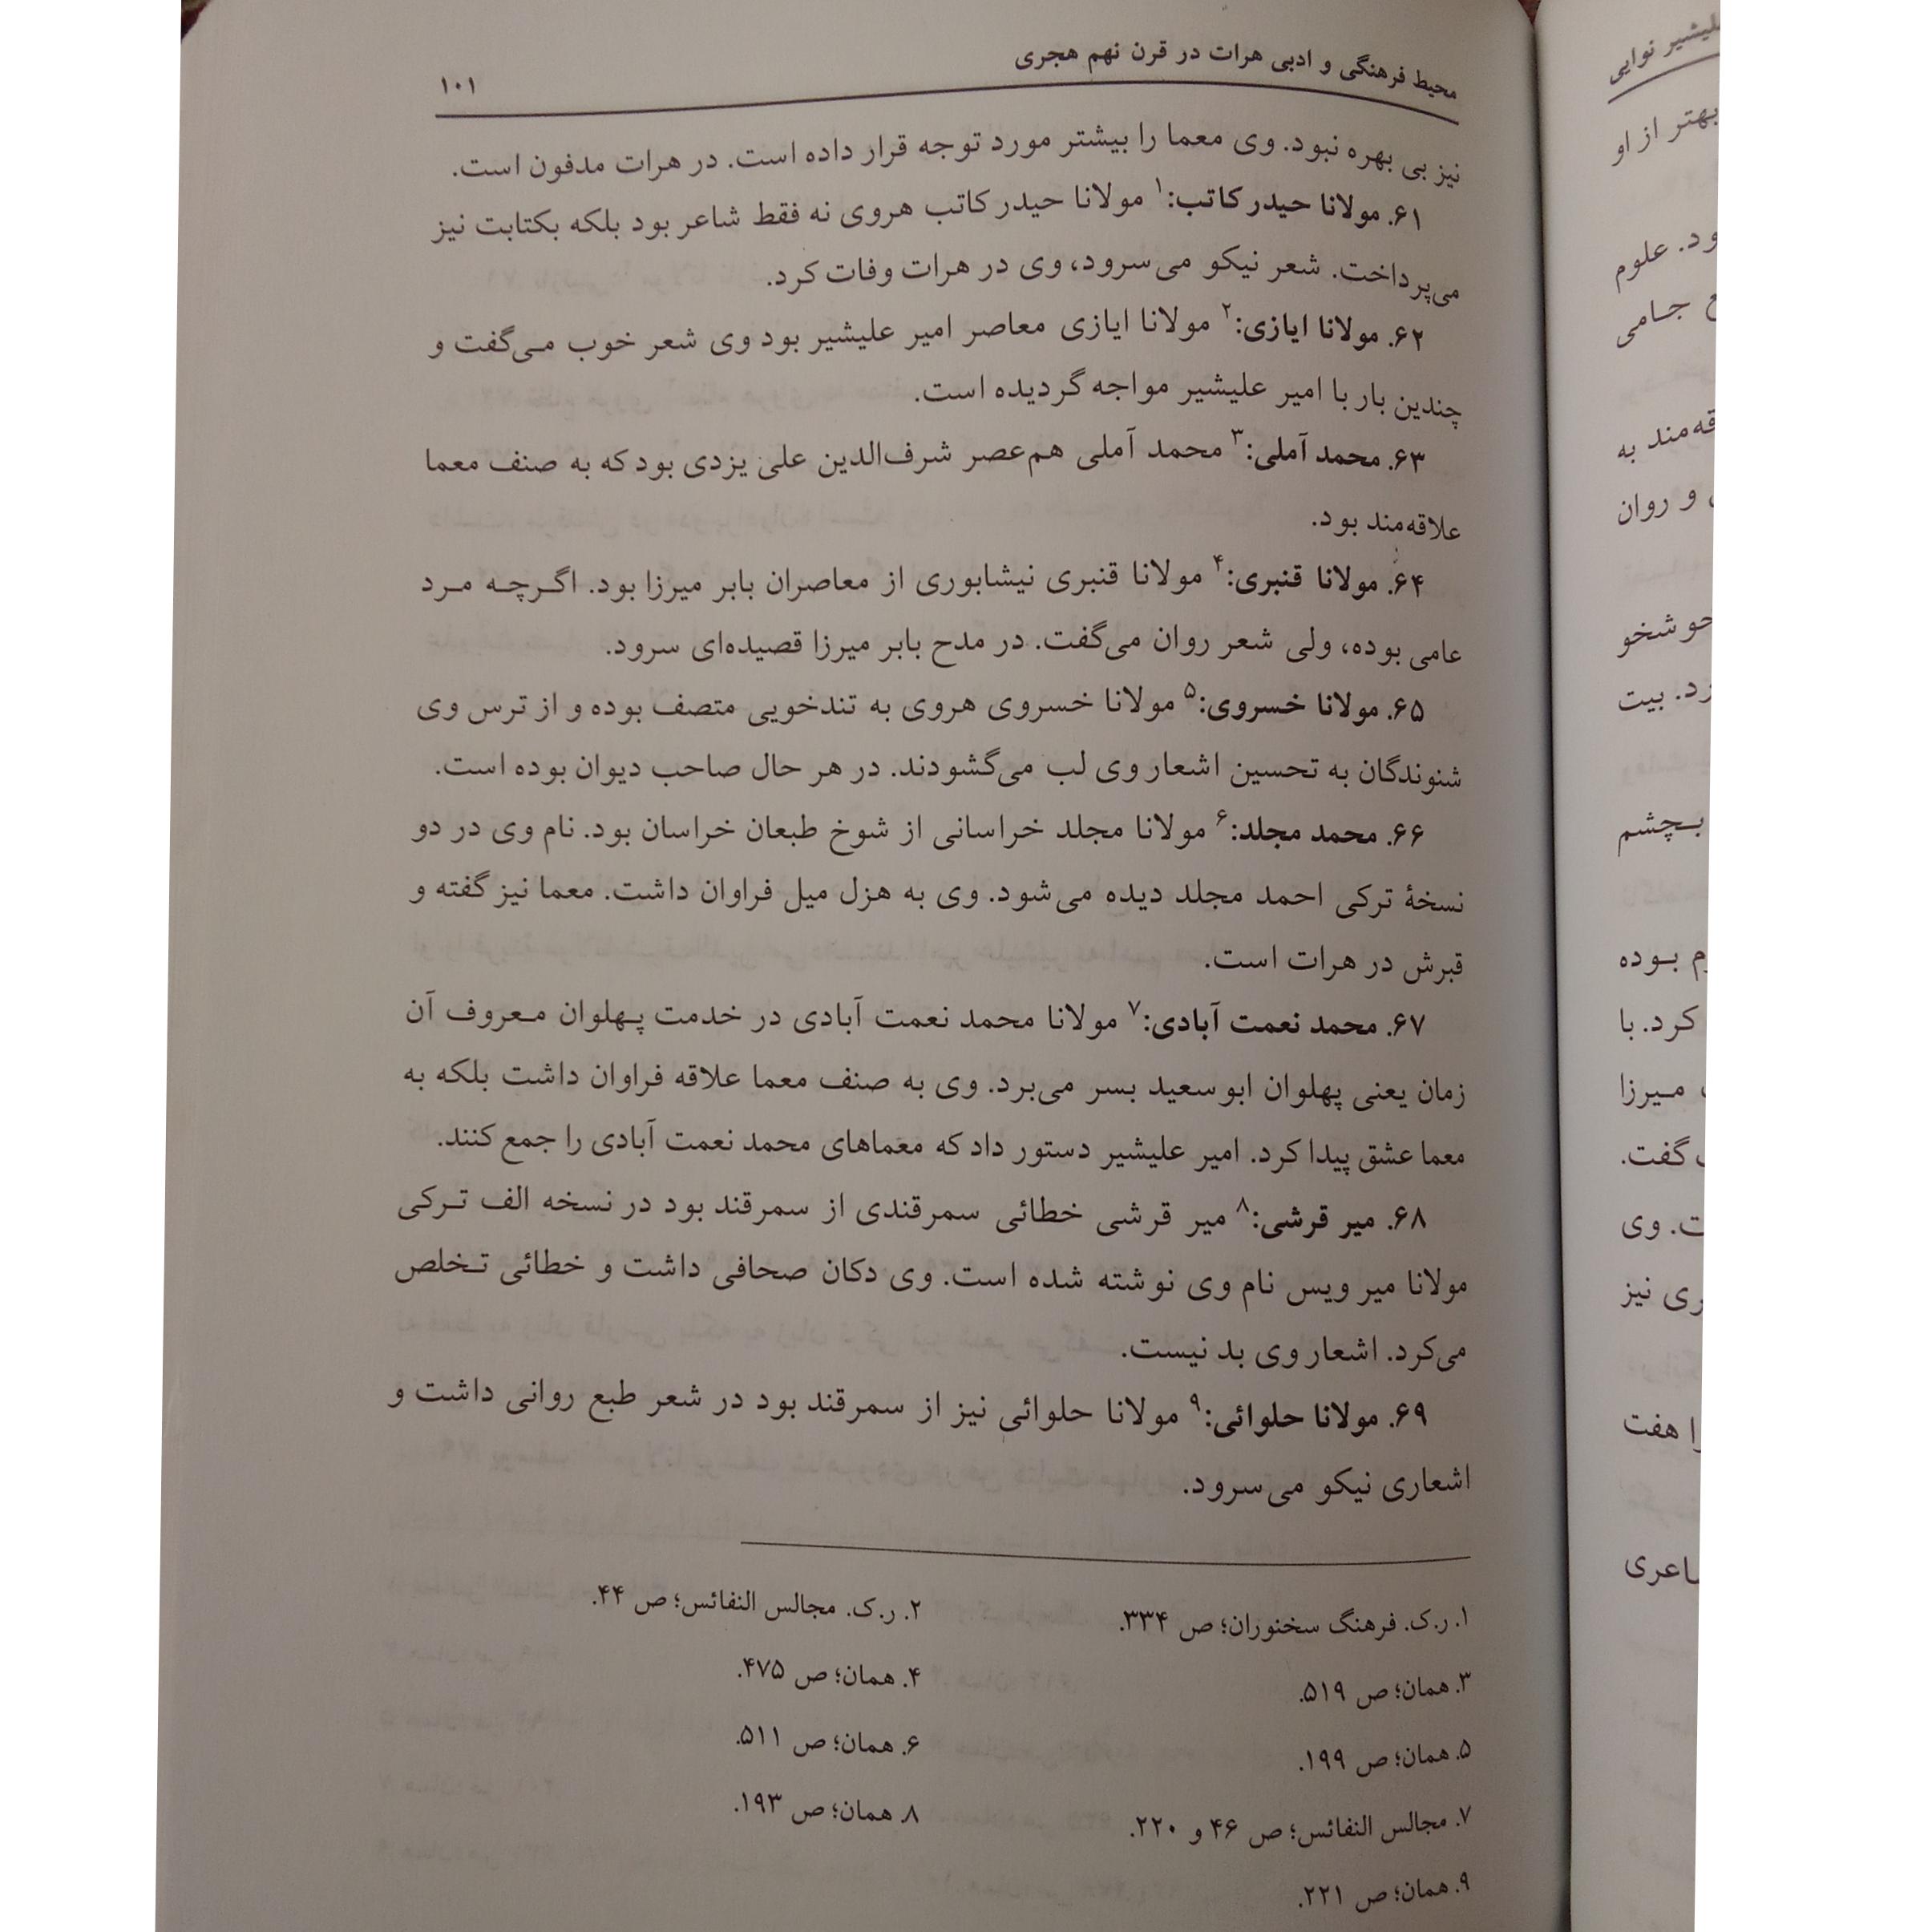 محیط فرهنگی و ادبی هرات در قرن نهم هجری ۱۰۱
نیز بی بهره نبود. وی معما را بیشتر مورد توجه قرار داده است. در هرات مدفون است.
۶۱. مولانا حیدر کاتب:۱ مولانا حیدر کاتب هروی نه فقط شاعر بود بلکه بکتابت نیز
می‌پرداخت. شعر نیکو می‌سرود، وی در هرات وفات کرد.
۶۲. مولانا ایازی:۲ مولانا ایازی معاصر امیر علیشیر بود وی شعر خوب می‌گفت و
چندین بار با امیر علیشیر مواجه گردیده است.
۶۳. محمد آملی:۳ محمد آملی هم‌عصر شرف‌الدین علی یزدی بود که به صنف معما
علاقه‌مند بود.
۶۴. مولانا قنبری:۴ مولانا قنبری نیشابوری از معاصران بابر میرزا بود. اگرچه مرد
عامی بوده، ولی شعر روان می‌گفت. در مدح بابر میرزا قصیده‌ای سرود.
۶۵. مولانا خسروی:۵ مولانا خسروی هروی به تندخویی متصف بوده و از ترس وی
شنوندگان به تحسین اشعار وی لب می‌گشودند. در هر حال صاحب دیوان بوده است.
۶۶. محمد مجلد:۶ مولانا مجلد خراسانی از شوخ طبعان خراسان بود. نام وی در دو
نسخهٔ ترکی احمد مجلد دیده می‌شود. وی به هزل میل فراوان داشت. معما نیز گفته و
قبرش در هرات است.
۶۷. محمد نعمت آبادی:۷ مولانا محمد نعمت آبادی در خدمت پهلوان معروف آن
زمان یعنی پهلوان ابوسعید بسر می‌برد. وی به صنف معما علاقه فراوان داشت بلکه به
معما عشق پیدا کرد. امیر علیشیر دستور داد که معماهای محمد نعمت آبادی را جمع کنند.
۶۸. میر قرشی:۸ میر قرشی خطائی سمرقندی از سمرقند بود در نسخه الف ترکی
مولانا میر ویس نام وی نوشته شده است. وی دکان صحافی داشت و خطائی تخلص
می‌کرد. اشعار وی بد نیست.
۶۹. مولانا حلوائی:۹ مولانا حلوائی نیز از سمرقند بود در شعر طبع روانی داشت و
اشعاری نیکو می‌سرود.
۱. ر.ک. فرهنگ سخنوران؛ ص ۳۳۴. ۲. ر.ک. مجالس النفائس؛ ص ۴۴.
۳. همان؛ ص ۵۱۹. ۴. همان؛ ص ۴۷۵.
۵. همان؛ ص ۱۹۹. ۶. همان؛ ص ۵۱۱.
۷. مجالس النفائس؛ ص ۴۶ و ۲۲۰. ۸. همان؛ ص ۱۹۳.
۹. همان؛ ص ۲۲۱.
علیشیر نوایی
بهتر از او
علوم
جامی
به
و روان
بیت
بچشم
بوده
کرد. با
میرزا
گفت.
وی
نیز
هفت